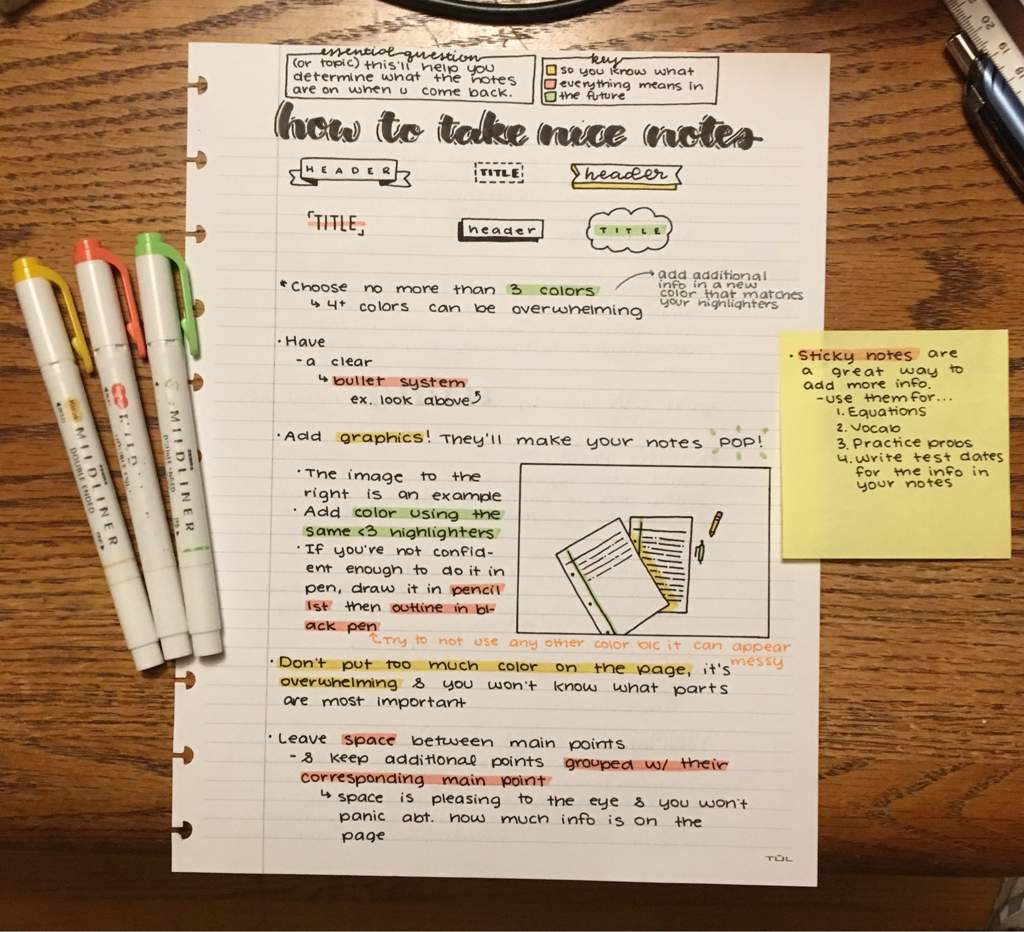 essential question
(or topic) this'll help you
determine what the notes
are on when u come back.
key
so you know what
everything means in
the future
how to take nice notes
HEADER
TITLE
header
TITLE
header
TITLE
*Choose no more than 3 colors
↳ 4+ colors can be overwhelming
add additional
info in a new
color that matches
your highlighters
· Have
- a clear
↳ bullet system
ex. look above
· Add graphics! They'll make your notes POP!
· The image to the
right is an example
· Add color using the
same <3 highlighters
· If you're not confid-
ent enough to do it in
pen, draw it in pencil
1st then outline in bl-
ack pen
Try to not use any other color b/c it can appear
messy
· Don't put too much color on the page, it's
overwhelming & you won't know what parts
are most important
· Leave space between main points
- & keep additional points grouped w/ their
corresponding main point
↳ space is pleasing to the eye & you won't
panic abt. how much info is on the
page
TUL
· Sticky notes are
a great way to
add more info.
- use them for...
1. Equations
2. Vocab
3. Practice probs
4. Write test dates
for the info in
your notes
MILDLINER
DOUBLE ENDED
MILDLINER
MILDLINER
20
19